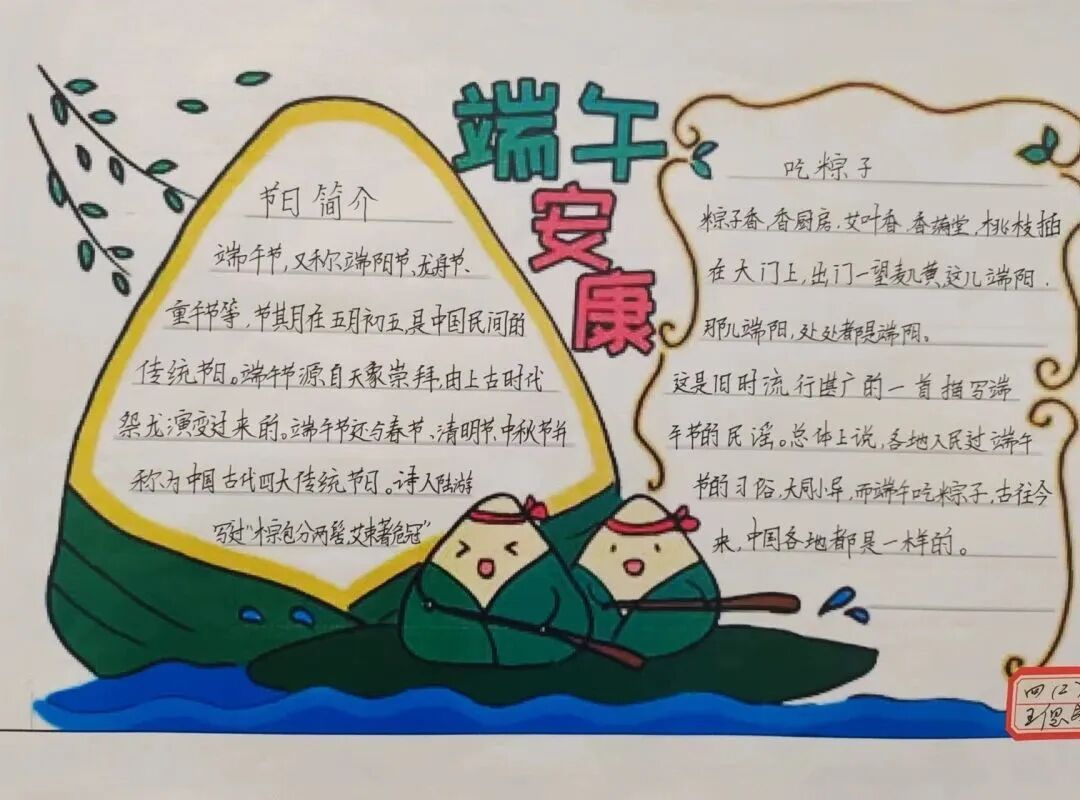 端午
安
康
节日简介
端午节,又称端阳节、龙舟节、
重午节等,节其月在五月初五,是中国民间的
传统节日。端午节源自天象崇拜,由上古时代
祭龙演变过来的。端午节还与春节、清明节、中秋节并
称为中国古代四大传统节日。诗人陆游
写过“粽包分两髻,艾束著危冠”
吃粽子
粽子香,香厨房,艾叶香,香满堂,桃枝插
在大门上,出门一望麦儿黄,这儿端阳.
那儿端阳,处处都是端阳。
这是旧时流行甚广的一首描写端
午节的民谣。总体上说,各地人民过端午
节的习俗,大同小异,而端午吃粽子,古往今
来,中国各地都是一样的。
四(2)
王思